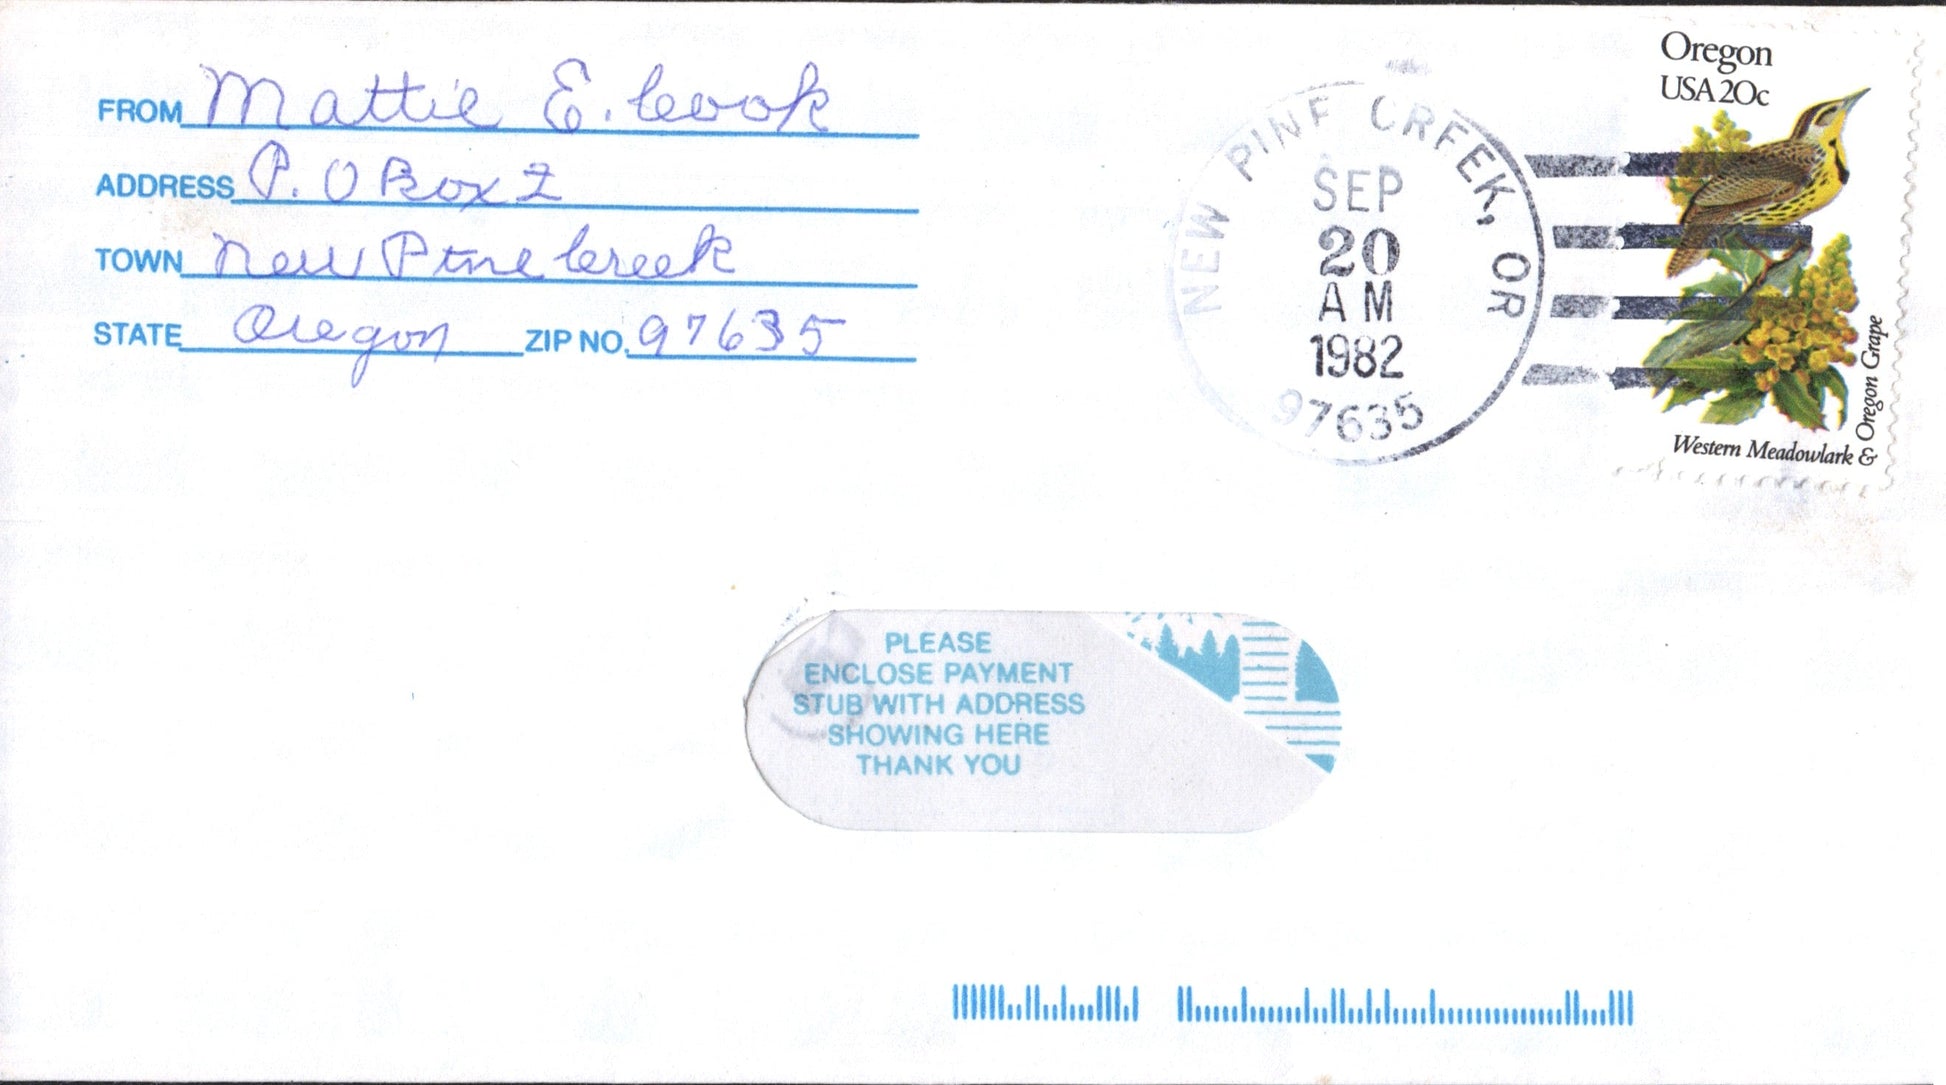 FROM Mattie E. Cook
ADDRESS P. O Box 2
TOWN New Pine Creek
STATE Oregon ZIP NO. 97635
NEW PINE CREEK, OR
SEP
20
AM
1982
97635
Oregon
USA 20c
Western Meadowlark & Oregon Grape
PLEASE
ENCLOSE PAYMENT
STUB WITH ADDRESS
SHOWING HERE
THANK YOU